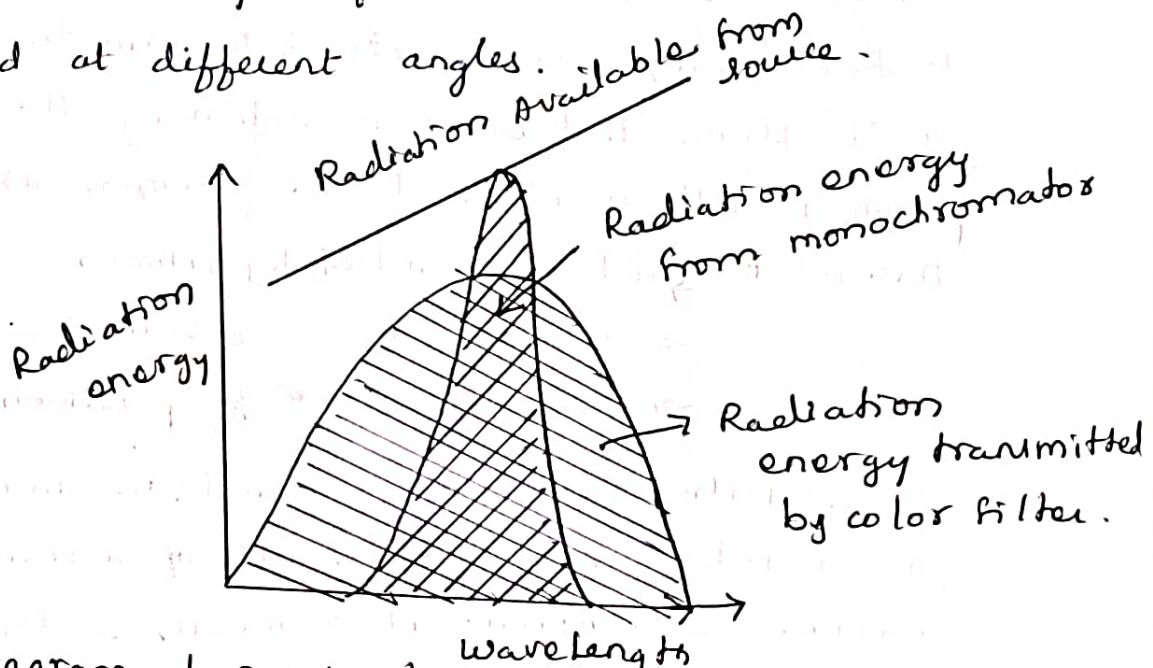 d at different angles.
Radiation Available from
source.
Radiation energy
from monochromator
Radiation
energy
Radiation
energy transmitted
by color filter.
wavelength